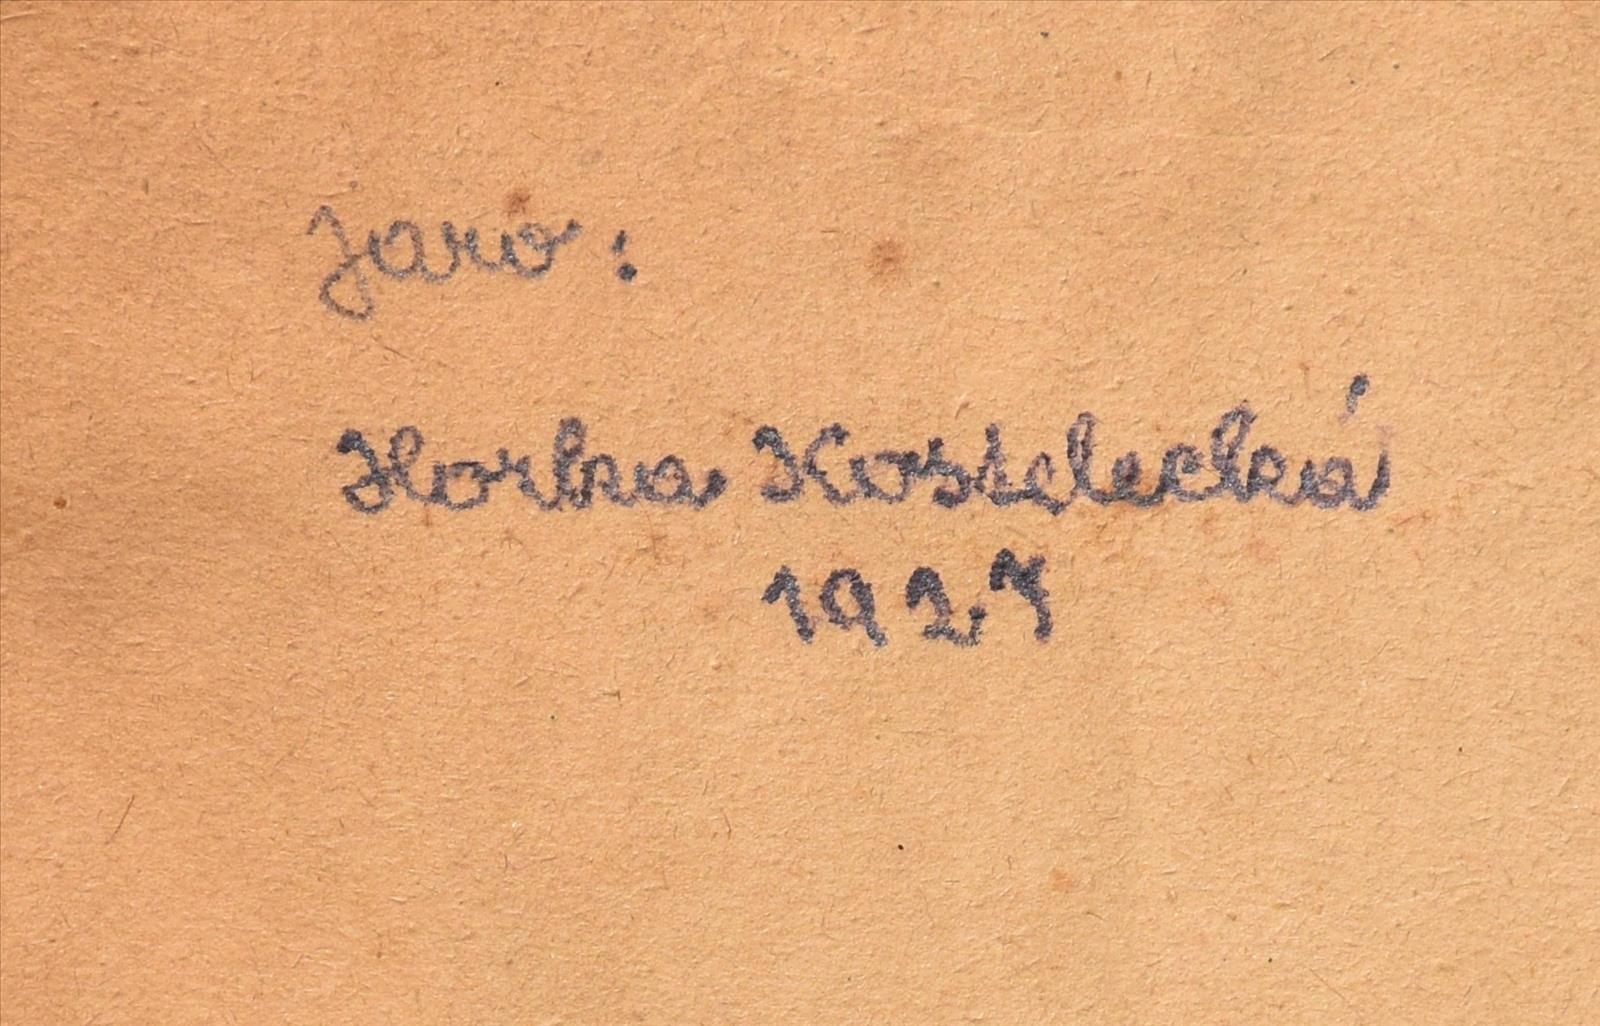 Jaro:
Horka Kostelecká
1927